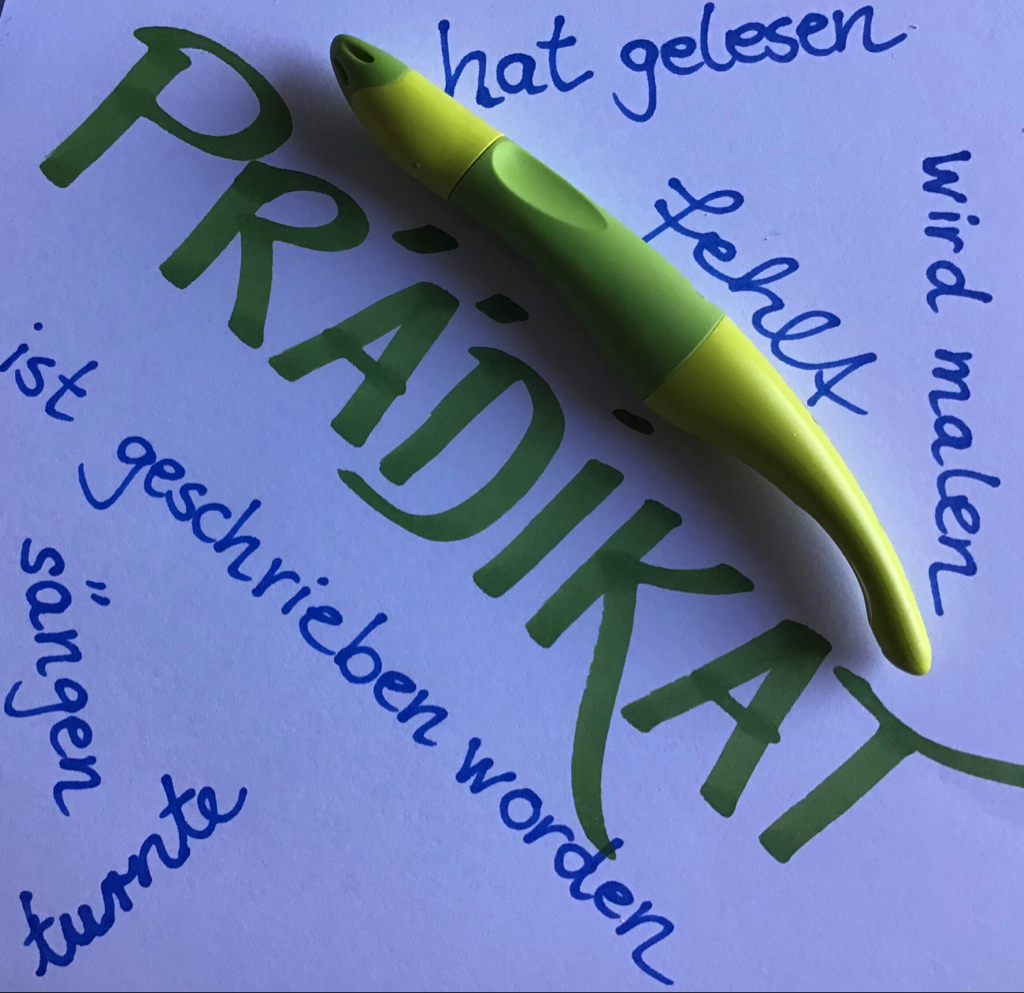 hat gelesen
PRÄDIKAT
fehlt
wird malen
ist geschrieben worden
sängen
turnte